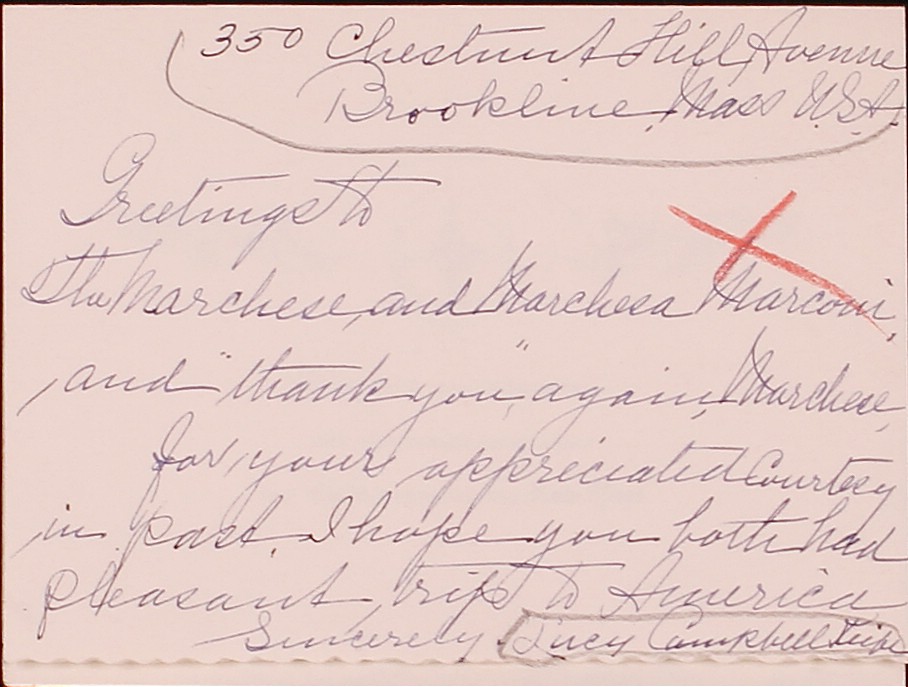 350 Chestnut Hill Avenue
Brookline, Mass U.S.A.
Greetings to
the Marchese, and Marchesa Marconi,
and "thank you", again, Marchese,
for your appreciated Courtesy
in past. I hope you both had
pleasant trip to America
Sincerely Lucy Campbell